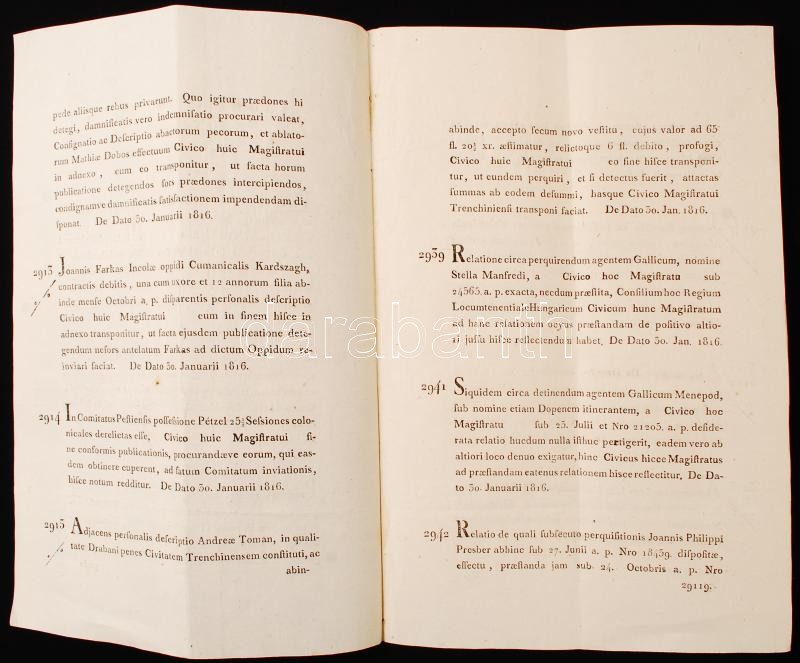 pede aliisque rebus privarunt. Quo igitur prædones hi
detegi, damnificatis vero indemnisatio procurari valeat,
Consignatio ac Deſcriptio abactorum pecorum, et ablato-
rum Mathiæ Dobos effectuum Civico huic Magiſtratui
in adnexo, cum eo tranſponitur, ut facta horum
publicatione detegendos ſuos prædones intercipiendos,
condignamve damnificatis satisfactionem impendendam di-
ſponat. De Dato 30. Januarii 1816.
2913 Joannis Farkas Incolæ oppidi Cumanicalis Kardszagh,
contractis debitis, una cum uxore et 12 annorum filia ab-
inde menſe Octobri a. p. diſparentis perſonalis deſcriptio
Civico huic Magiſtratui cum in finem hiſce in
adnexo tranſponitur, ut facta ejusdem publicatione dete-
gendum nefors antelatum Farkas ad dictum Oppidum re-
inviari faciat. De Dato 30. Januarii 1816.
2914 In Comitatus Peſtienſis poſſeſſione Pétzel 25⅜ Seſſiones colo-
nicales derelictas eſſe, Civico huic Magiſtratui fi-
ne conformis publicationis, procurandæve eorum, qui eas-
dem obtinere cuperent, ad fatum Comitatum inviationis,
hiſce notum redditur. De Dato 30. Januarii 1816.
2915 Adjacens perſonalis deſcriptio Andreæ Toman, in quali-
tate Drabani penes Civitatem Trenchinenſem conſtituti, ac
abin-
abinde, accepto ſecum novo veſtitu, cujus valor ad 65
fl. 20½ xr. æſtimatur, relictoque 6 fl. debito, profugi,
Civico huic Magiſtratui eo fine hiſce tranſponi-
tur, ut eundem perquiri, et ſi detectus fuerit, attactas
ſummas ab eodem deſumi, hasque Civico Magiſtratui
Trenchinienſi tranſponi faciat. De Dato 30. Jan. 1816.
2939 Relatione circa perquirendum agentem Gallicum, nomine
Stella Manfredi, a Civico hoc Magiſtratu sub
24565. a. p. exacta, necdum præſtita, Conſilium hoc Regium
Locumtenentiale Hungaricum Civicum hunc Magiſtratum
ad hanc relationem ocyus præſtandam de poſitivo altio-
ri juſſu hiſce reflectendum habet. De Dato 30. Jan. 1816.
2941 Siquidem circa detinendum agentem Gallicum Menepod,
ſub nomine etiam Dopenem itinerantem, a Civico hoc
Magiſtratu ſub 25. Julii et Nro 21205. a. p. deſide-
rata relatio hucdum nulla iſthuc pertigerit, eadem vero ab
altiori loco denuo exigatur, hinc Civicus hicce Magiſtratus
ad præſtandam eatenus relationem hisce reflectitur. De Da-
to 30. Januarii 1816.
2942 Relatio de quali ſubſecuto perquiſitionis Joannis Philippi
Presber abhinc ſub 27. Junii a. p. Nro 18439. diſpoſitæ,
effectu, præſtanda jam sub 24. Octobris a. p. Nro
29119.
darabanth